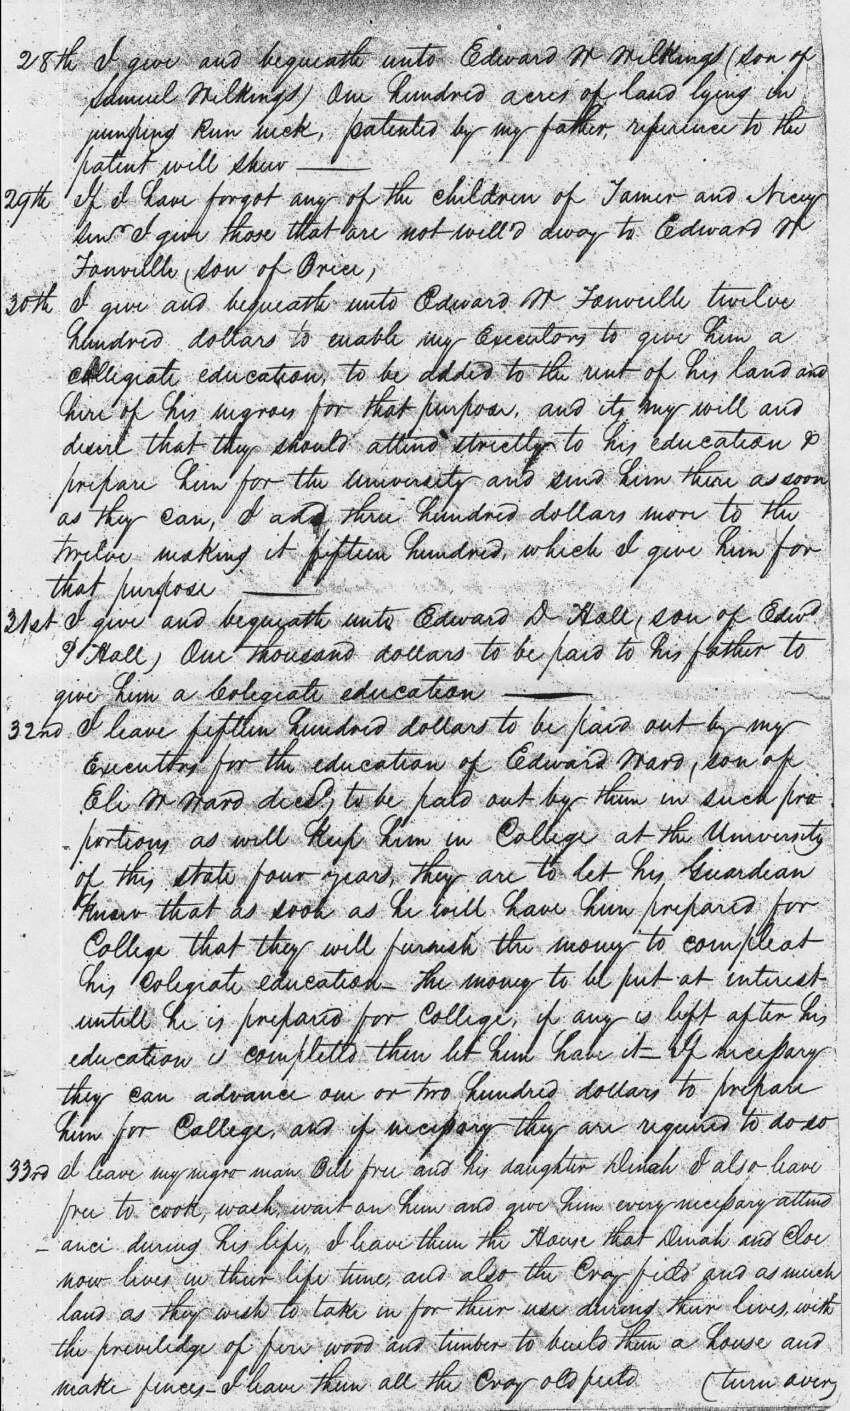 28th I give and bequeath unto Edward W Wilkings (son of
Samuel Wilkings) One hundred acres of land lying in
jumping Run neck, patented by my father, reference to the
patent will shew
29th If I have forgot any of the children of Tamer and Nicey
Senr I give those that are not will'd away to Edward W
Fonville (son of Brice,
30th I give and bequeath unto Edward W Fonville twelve
hundred dollars to enable my Executors to give him a
collegiate education, to be added to the rent of his land and
hire of his negroes for that purpose, and its my will and
desire that they should attend strictly to his education &
prepare him for the University and send him there as soon
as they can, I add three hundred dollars more to the
twelve making it fifteen hundred, which I give him for
that purpose
31st I give and bequeath unto Edward D Hall, son of Edwd
P Hall) One thousand dollars to be paid to his father to
give him a Colegiate education
32nd I leave fifteen hundred dollars to be paid out by my
Executors for the education of Edward Ward, son of
Eli W Ward decd, to be paid out by them in such pro
-portions as will keep him in College at the University
of this state four years, they are to let his Guardian
know that as soon as he will have him prepared for
College that they will furnish the money to compleat
his Colegiate education - the money to be put at interest
untill he is prepared for College, if any is left after his
education is completed then let him have it - If necessary
they can advance one or two hundred dollars to prepare
him for College, and if necessary they are required to do so
33rd I leave my negro man Bill free and his daughter Dinah I also leave
free to cook, wash, wait on him and give him every necessary attend
-ance during his life, I leave them the House that Dinah and Cloe
now lives in their life time, and also the Cray field and as much
land as they wish to take in for their use during their lives, with
the previledge of fire wood and timber to build them a house and
make fences - I leave them all the Cray old field (turn over)